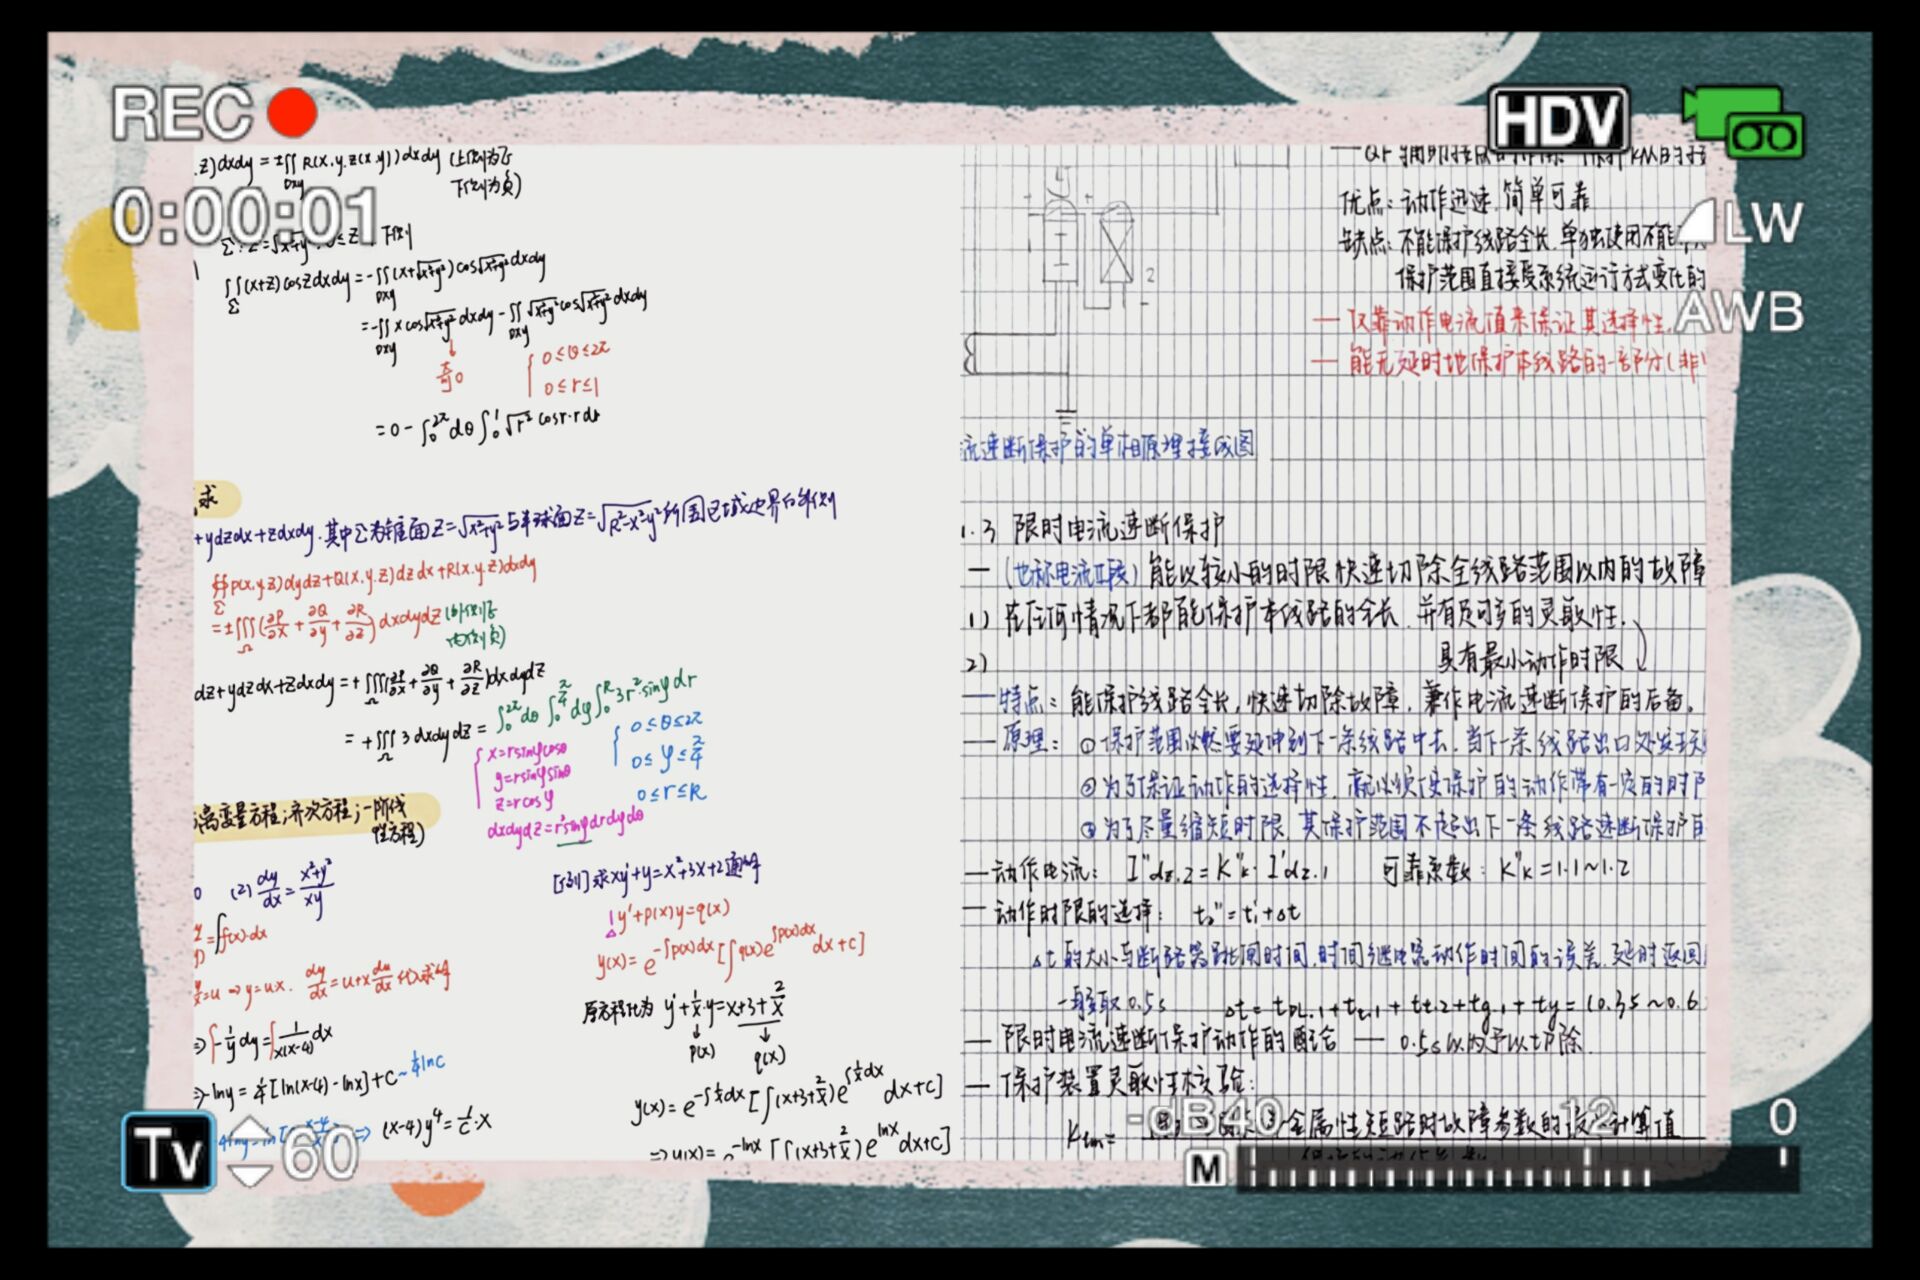 REC
HDV
0:00:01
LW
AWB
z)dxdy = ±∬ R(x,y,z(x,y))dxdy (上侧为正
Dxy 下侧为负)
下侧
∬(x+z)coszdxdy = -∬(x+√x²+y²)cos√x²+y²dxdy
Σ Dxy
= -∬xcos√x²+y²dxdy - ∬√x²+y²cos√x²+y²dxdy
Dxy Dxy
奇0
0≤θ≤2π
0≤r≤1
= 0 - ∫₀^2π dθ ∫₀^1 √r² cosr·rdr
求
+ydzdx+zdxdy.其中Σ为锥面z=√x²+y²与半球面z=√R²-x²-y²所围区域边界的外侧
∯P(x,y,z)dydz+Q(x,y,z)dzdx+R(x,y,z)dxdy
Σ
= ±∭(∂P/∂x + ∂Q/∂y + ∂R/∂z)dxdydz (外侧正
Ω 内侧负)
dz+ydzdx+zdxdy = +∭(∂P/∂x + ∂Q/∂y + ∂R/∂z)dxdydz
Ω
= +∭3dxdydz = ∫₀^2π dθ ∫₀^π/4 dφ ∫₀^R 3r²·sinφdr
Ω
x=rsinφcosθ
y=rsinφsinθ
z=rcosφ
dxdydz=r²sinφdrdφdθ
0≤θ≤2π
0≤φ≤π/4
0≤r≤R
离变量方程;齐次方程;一阶线
性方程)
(2) dy/dx = x²+y²/xy
=∫f(x)·dx
=u ⇒ y=ux. dy/dx = u+x du/dx 代入求解
⇒ ∫-1/y dy = ∫1/x(x-4) dx
⇒ -lny = 1/4[ln(x-4)-lnx]+C ~ 1/4lnC
⇒ (x-4)y⁴ = 1/C·x
[例]求xy'+y=x²+3x+2通解
y'+p(x)y=q(x)
y(x)=e^-∫p(x)dx[∫q(x)e^∫p(x)dx dx+C]
原方程化为 y'+1/x·y=x+3+2/x
p(x) q(x)
y(x)=e^-∫1/x dx[∫(x+3+2/x)e^∫1/x dx dx+C]
⇒y(x)=e^-lnx[∫(x+3+2/x)e^lnx dx+C]
优点:动作迅速,简单可靠
缺点:不能保护线路全长,单独使用不能
保护范围直接受系统运行方式变化的
—仅靠动作电流值来保证其选择性,
—能无延时地保护本线路的一部分(非
2
流速断保护的单相原理接线图
1.3 限时电流速断保护
—(也称电流II段)能以较小的时限快速切除全线路范围以内的故障
1)在任何情况下都能保护本线路的全长,并有足够的灵敏性.
2) 具有最小动作时限
—特点:能保护线路全长,快速切除故障,兼作电流速断保护的后备。
—原理:①保护范围必然要延伸到下一条线路中去,当下一条线路出口处发生
②为了保证动作的选择性,就必须使保护的动作带有一定的时
③为了尽量缩短时限,其保护范围不超出下一条线路速断保护
—动作电流: I''dz.2=K''k·I'dz.1 可靠系数: K''k=1.1~1.2
—动作时限的选择: t₂''=t₁'+Δt
Δt的大小与断路器跳闸时间,时间继电器动作时间的误差,延时返回
一般取0.5s Δt=tDL.1+tt.1+tt.2+tg.1+ty=(0.35~0.6
—限时电流速断保护动作的配合 — 0.5s以内予以切除
—保护装置灵敏性校验:
Klm= 金属性短路时故障参数的 计算值
-dB40 12 0
Tv 60
M